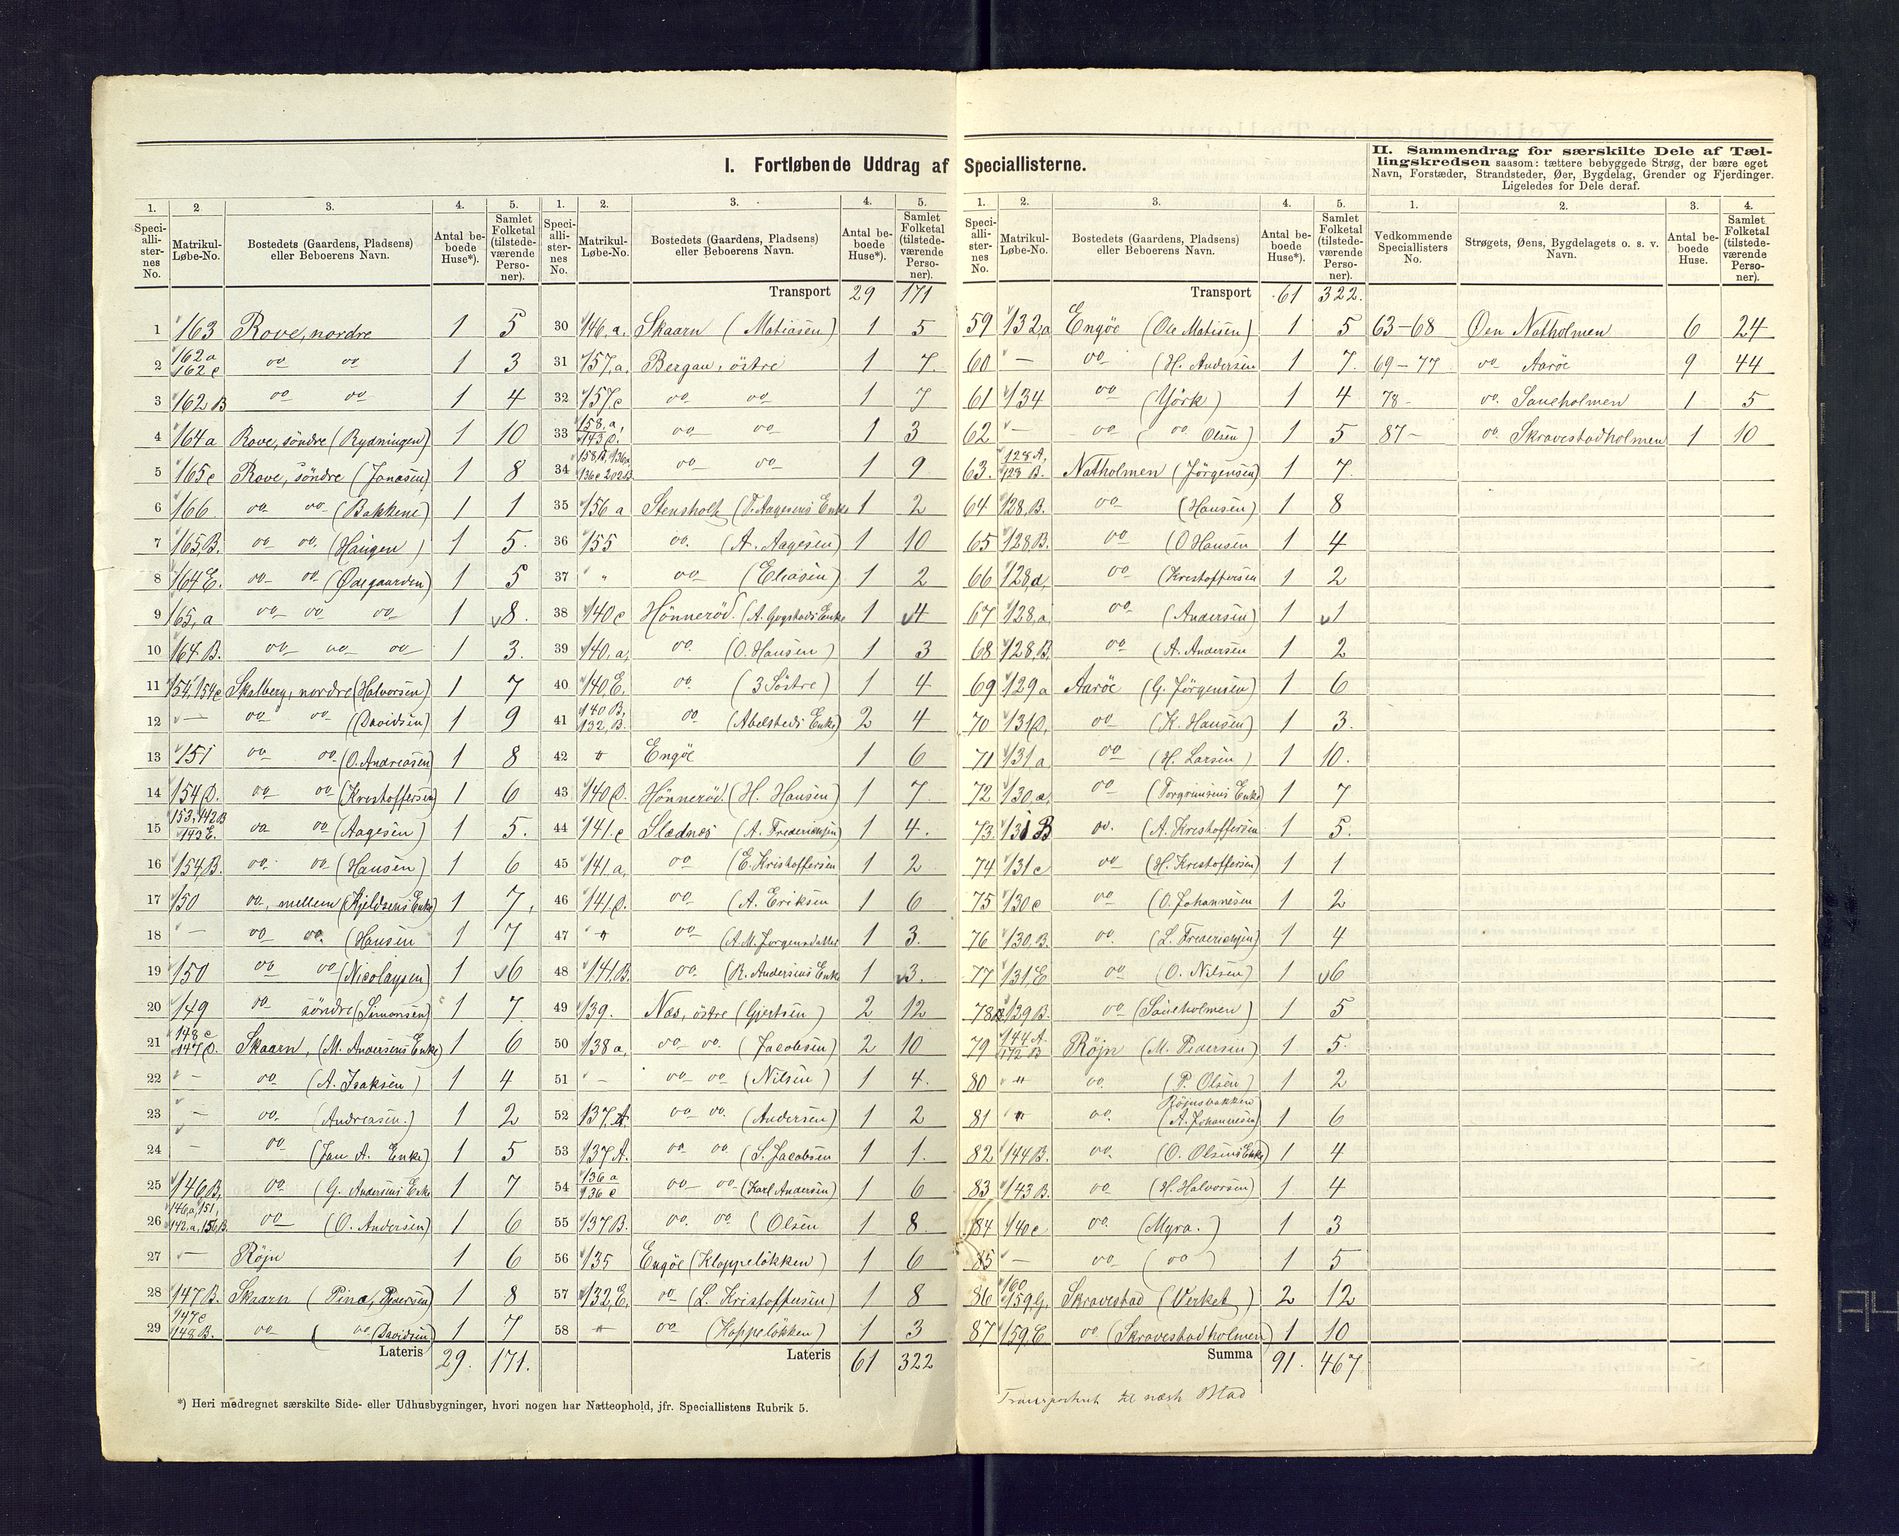 I. Fortløbende Uddrag af Speciallisterne.
1. 2. 3. 4. 5.
Speciallisternes No. Matrikul-Løbe-No. Bostedets (Gaardens, Pladsens) eller Beboerens Navn. Antal beboede Huse*). Samlet Folketal (tilstedeværende Personer).
1 163 Rove, nordre 1 5
2 162a 162c oo oo 1 3
3 162B oo oo 1 4
4 164a Rove, söndre (Rydningen) 1 10
5 165c Rove, söndre (Jonasen) 1 8
6 166 oo oo (Bakkene) 1 1
7 165,B. oo oo. (Haugen) 1 5.
8 164E. oo oo (Ødegaarden) 1 5
9 165,a oo oo oo 1 8.
10 164B. oo oo oo 1 3.
11 154,154c Skalberg, nordre (Halvorsen) 1 7
12 — oo oo (Davidsen) 1 9
13 151 oo oo (O. Andreasen) 1 8
14 154D. oo oo (Kristoffersen) 1 6
15 153,142B 142E. oo oo (Aagesen) 1 5.
16 154B. oo oo (Hansen) 1 6
17 150 oo, mellem (Kjeldsens Enke) 1 7,
18 — oo oo. (Hansen 1 7
19 150 oo oo (Nicolaysen) 1 6
20 149 oo söndre (Simonsen) 1 7.
21 148c 147D. Skaarn, (M. Andersens Enke) 1 6
22 — oo (A. Isaksen) 1 4
23 — oo. (Andreasen.) 1 2
24 — oo (Jan A. Enke) 1 5
25 146B, oo (G. Andersens Enke 1 7
26 146a,151, 142,a,156B oo (O. Andersen) 1 6
27 — Röjn 1 6
28 147B. Skaarn (Pina, Pedersen) 1 8
29 147c 148B. oo ( oo Davidsen) 1 7
Lateris 29. 171.
*) Heri medregnet særskilte Side- eller Udhusbygninger, hvori nogen har Natteophold, jfr. Speciallistens Rubrik 5.
1. 2. 3. 4. 5.
Speciallisternes No. Matrikul-Løbe-No. Bostedets (Gaardens, Pladsens) eller Beboerens Navn. Antal beboede Huse*). Samlet Folketal (tilstedeværende Personer).
Transport 29 171
30 146,a. Skaarn (Matiasen) 1 5
31 157,a. Bergan, östre 1 7.
32 157c oo oo 1 7
33 158,a, 143D. oo oo 1 3
34 158B,136a, 136c 202B. oo oo 1 9
35 156a Stensholt (T. Aagesens Enke 1 2
36 155 oo. (A. Aagesen) 1 10
37 " oo (Eliasen) 1 2
38 140c Hönneröd. (A. Gogstads Enke 1 4
39 140,a, oo. (O. Hansen) 1 3
40 140,E. oo. (3 Söstre) 1 4
41 140B, 132,B. oo (Abelsteds Enke) 2 4
42 " Engöe 1 6
43 140D. Hönneröd. (H. Hansen) 1 7.
44 141c Slædnes (A. Frederiksen) 1 4.
45 141a, oo (E. Kristoffersen 1 2
46 141D. oo (A. Eriksen 1 6
47 " oo (A.M. Jorgensdatter 1 3.
48 141,B. oo (R. Andersens Enke 1 3.
49 139. Næs, östre (Gjertsen) 2 12
50 138a, oo oo. (Jacobsen) 2 10
51 — oo oo (Nilsen) 1 4.
52 137,A. oo oo. (Andersen) 1 2
53 137A. oo oo. (S. Jacobsen 1 1.
54 136a 136c oo oo. (Karl Andersen) 1 6
55 137B. oo. oo (Olsen 1 8
56 135 Engöe (Kloppelökken) 1 6
57 132,E, oo (L. Kristoffersen) 1 8
58 " oo (Koppelökken) 1 3
Lateris 61 322
1. 2. 3. 4. 5.
Speciallisternes No. Matrikul-Løbe-No. Bostedets (Gaardens, Pladsens) eller Beboerens Navn. Antal beboede Huse*). Samlet Folketal (tilstedeværende Personer).
Transport 61 322.
59 132,a Engöe (Ole Matisen) 1 5
60 — oo (H. Andersen 1 7.
61 134 oo (Yörk) 1 4
62 — oo ( oo Olsen) 1 5
63. 128A, 128B. Natholmen (Jörgensen) 1 7.
64 128,B. oo (Hansen) 1 8
65 128,B. oo (O Hansen 1 4
66 128,d, oo (Kristoffersen 1 2
67 128,a, oo (Andersen) 1 1
68 128,B. oo (A. Andersen 1 2
69 129a Aaröe (G. Jörgensen) 1 6
70 131D, oo (K. Hansen) 1 3.
71 131a oo (H. Larsen) 1 10.
72 130,a, oo (Torgrimsens Enke) 1 7
73. 131B oo. (A. Kristoffersen 1 5.
74 131c oo (H. Kristoffersen) 1 1
75 130c oo (O. Johannesen 1 2
76 130,B. oo. (L. Frederiksen) 1 4
77 131E oo (O. Nilsen) 1 6
78 129B. oo (Saueholmen) 1 5
79 144A. 142B Röjn (M. Pedersen) 1 5.
80 " oo. (P. Olsen) 1 2
81 " oo. Röjnsbakken (A. Johannesen) 1 6
82 144B. oo. (O. Olsens Enke) 1 4
83 143B. oo (H. Halvorsen) 1 4
84 140c oo. (Myra.) 1 3
85 — oo ( oo ) 1 5
86 160 159,G. Skravestad (Verket) 2 12
87 159,E oo (Skravestadholmen) 1 10
Summa 91. 467.
Transporteret til næste Blad
II. Sammendrag for særskilte Dele af Tællingskredsen saasom: tættere bebyggede Strøg, der bære eget Navn, Forstæder, Strandsteder, Øer, Bygdelag, Grender og Fjerdinger. Ligeledes for Dele deraf.
1. 2. 3. 4.
Vedkommende Speciallisters No. Strøgets, Øens, Bygdelagets o. s. v. Navn. Antal beboede Huse. Samlet Folketal (tilstedeværende Personer).
63–68 Øen Natholmen 6 24
69–77 oo Aaröe 9 44
78- oo. Saueholmen 1 5
87- oo Skravestadholmen 1 10